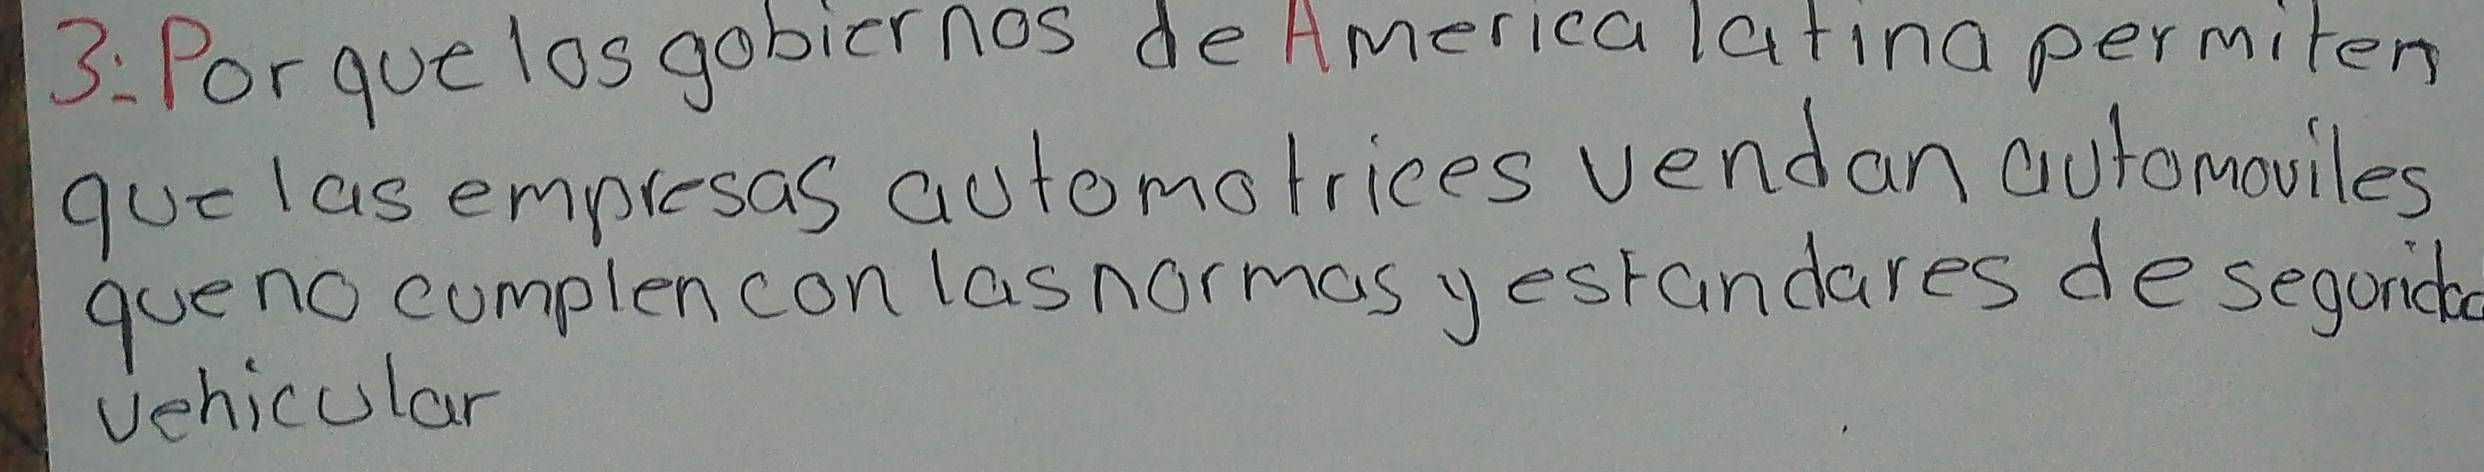 3:- Por que los gobiernos de America latina permiten
que las empresas automotrices vendan automoviles
que no cumplen con las normas y estandares de segurida
vehicular